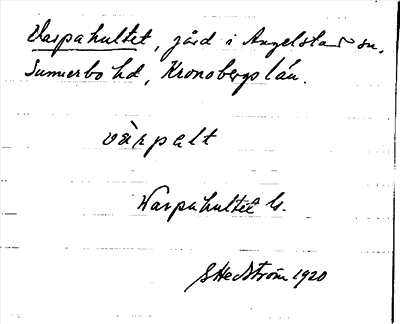 Varpahultet, gård i Angelstad sn.
Sunnerbo hd, Kronobergs län.
värpalt
Warpahultet
GHedström 1920